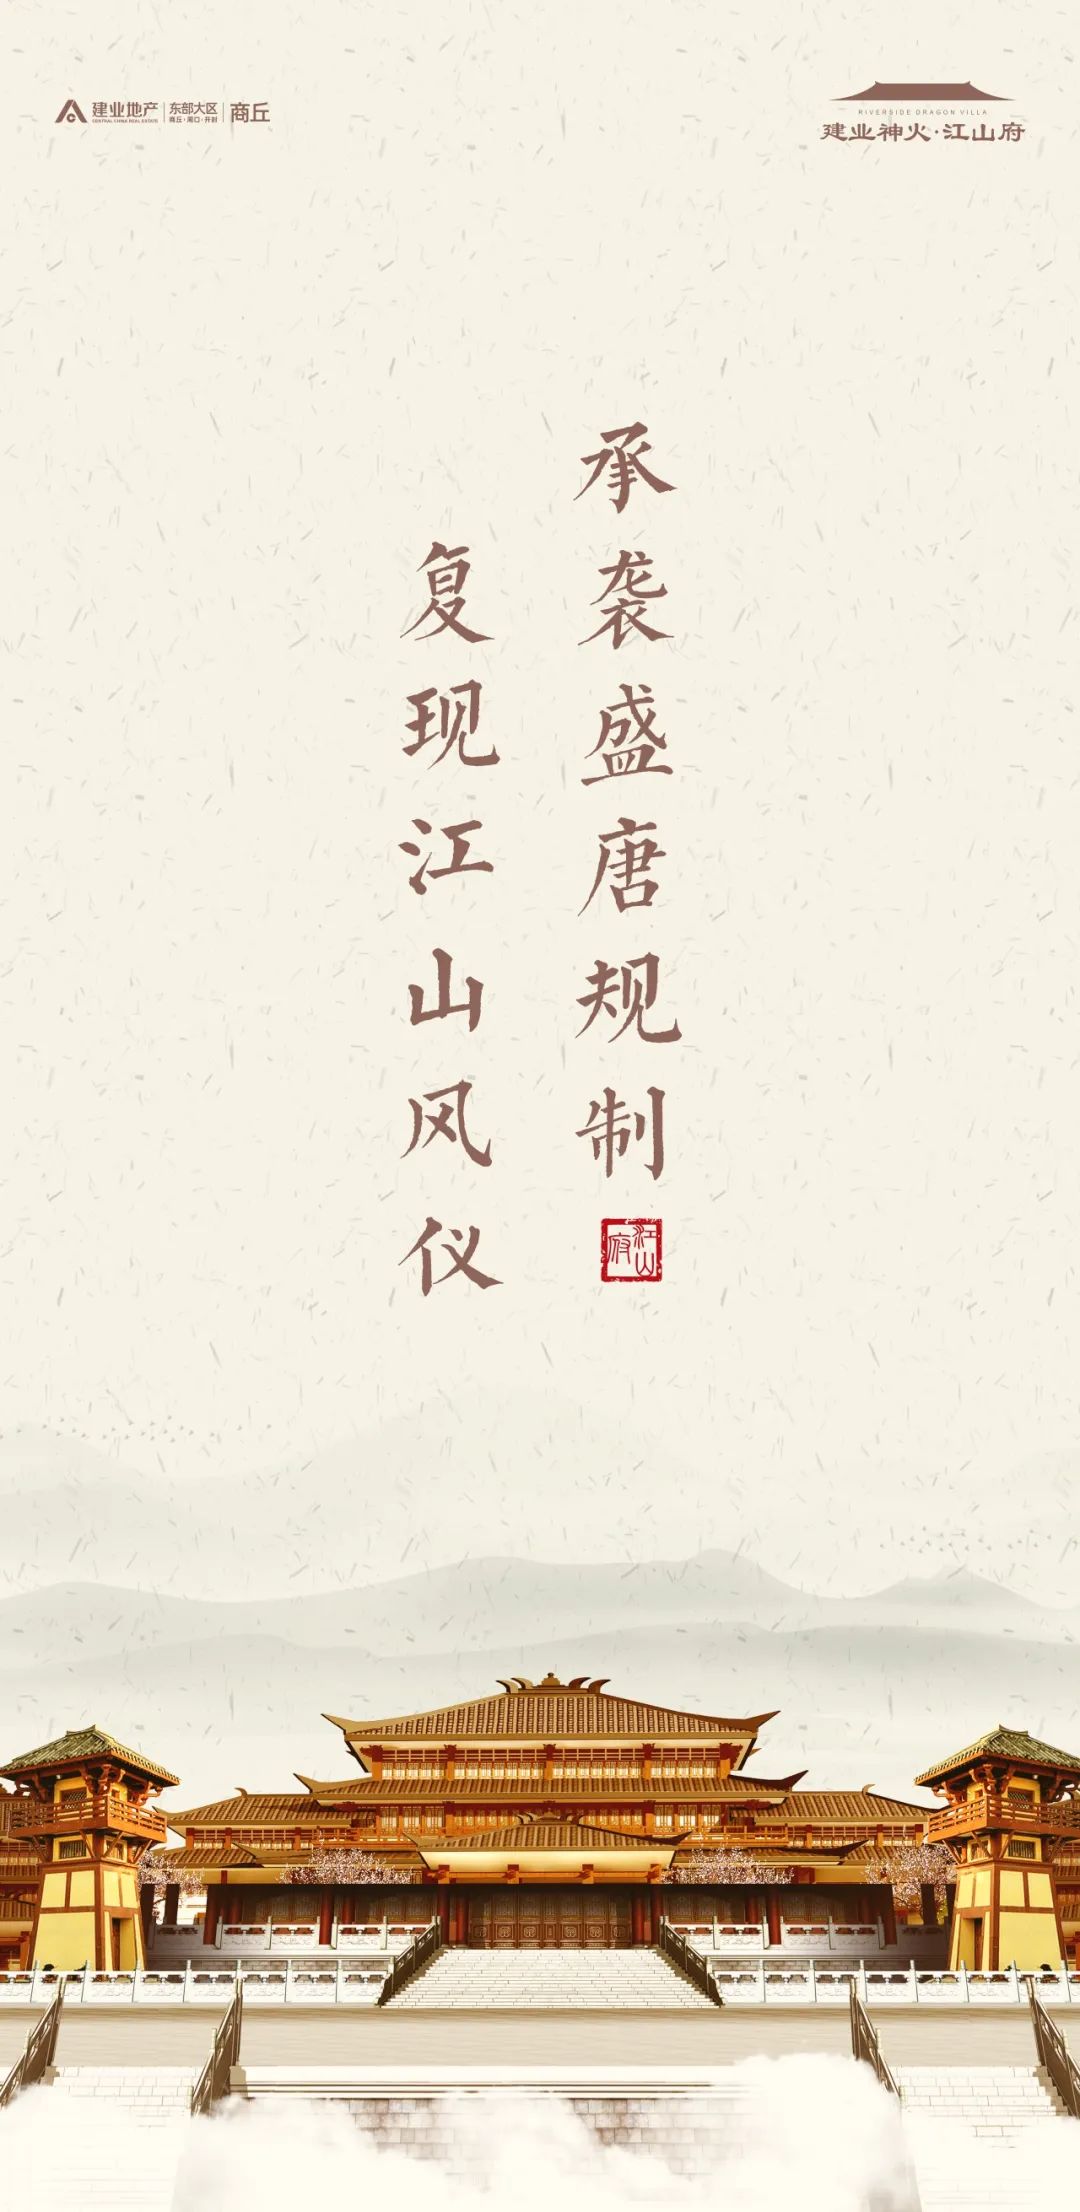 建业地产
CENTRAL CHINA REAL ESTATE
东部大区
商丘·周口·开封
商丘
RIVERSIDE DRAGON VILLA
建业神火·江山府
承袭盛唐规制
复现江山风仪
江山府